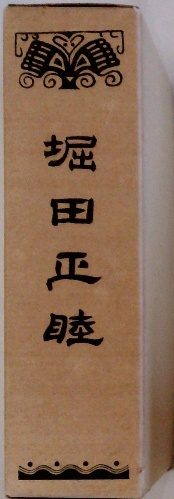 堀田正睦